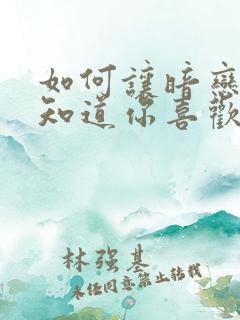 如何讓暗戀
知道你喜歡
林强基
未經同意禁止轉載